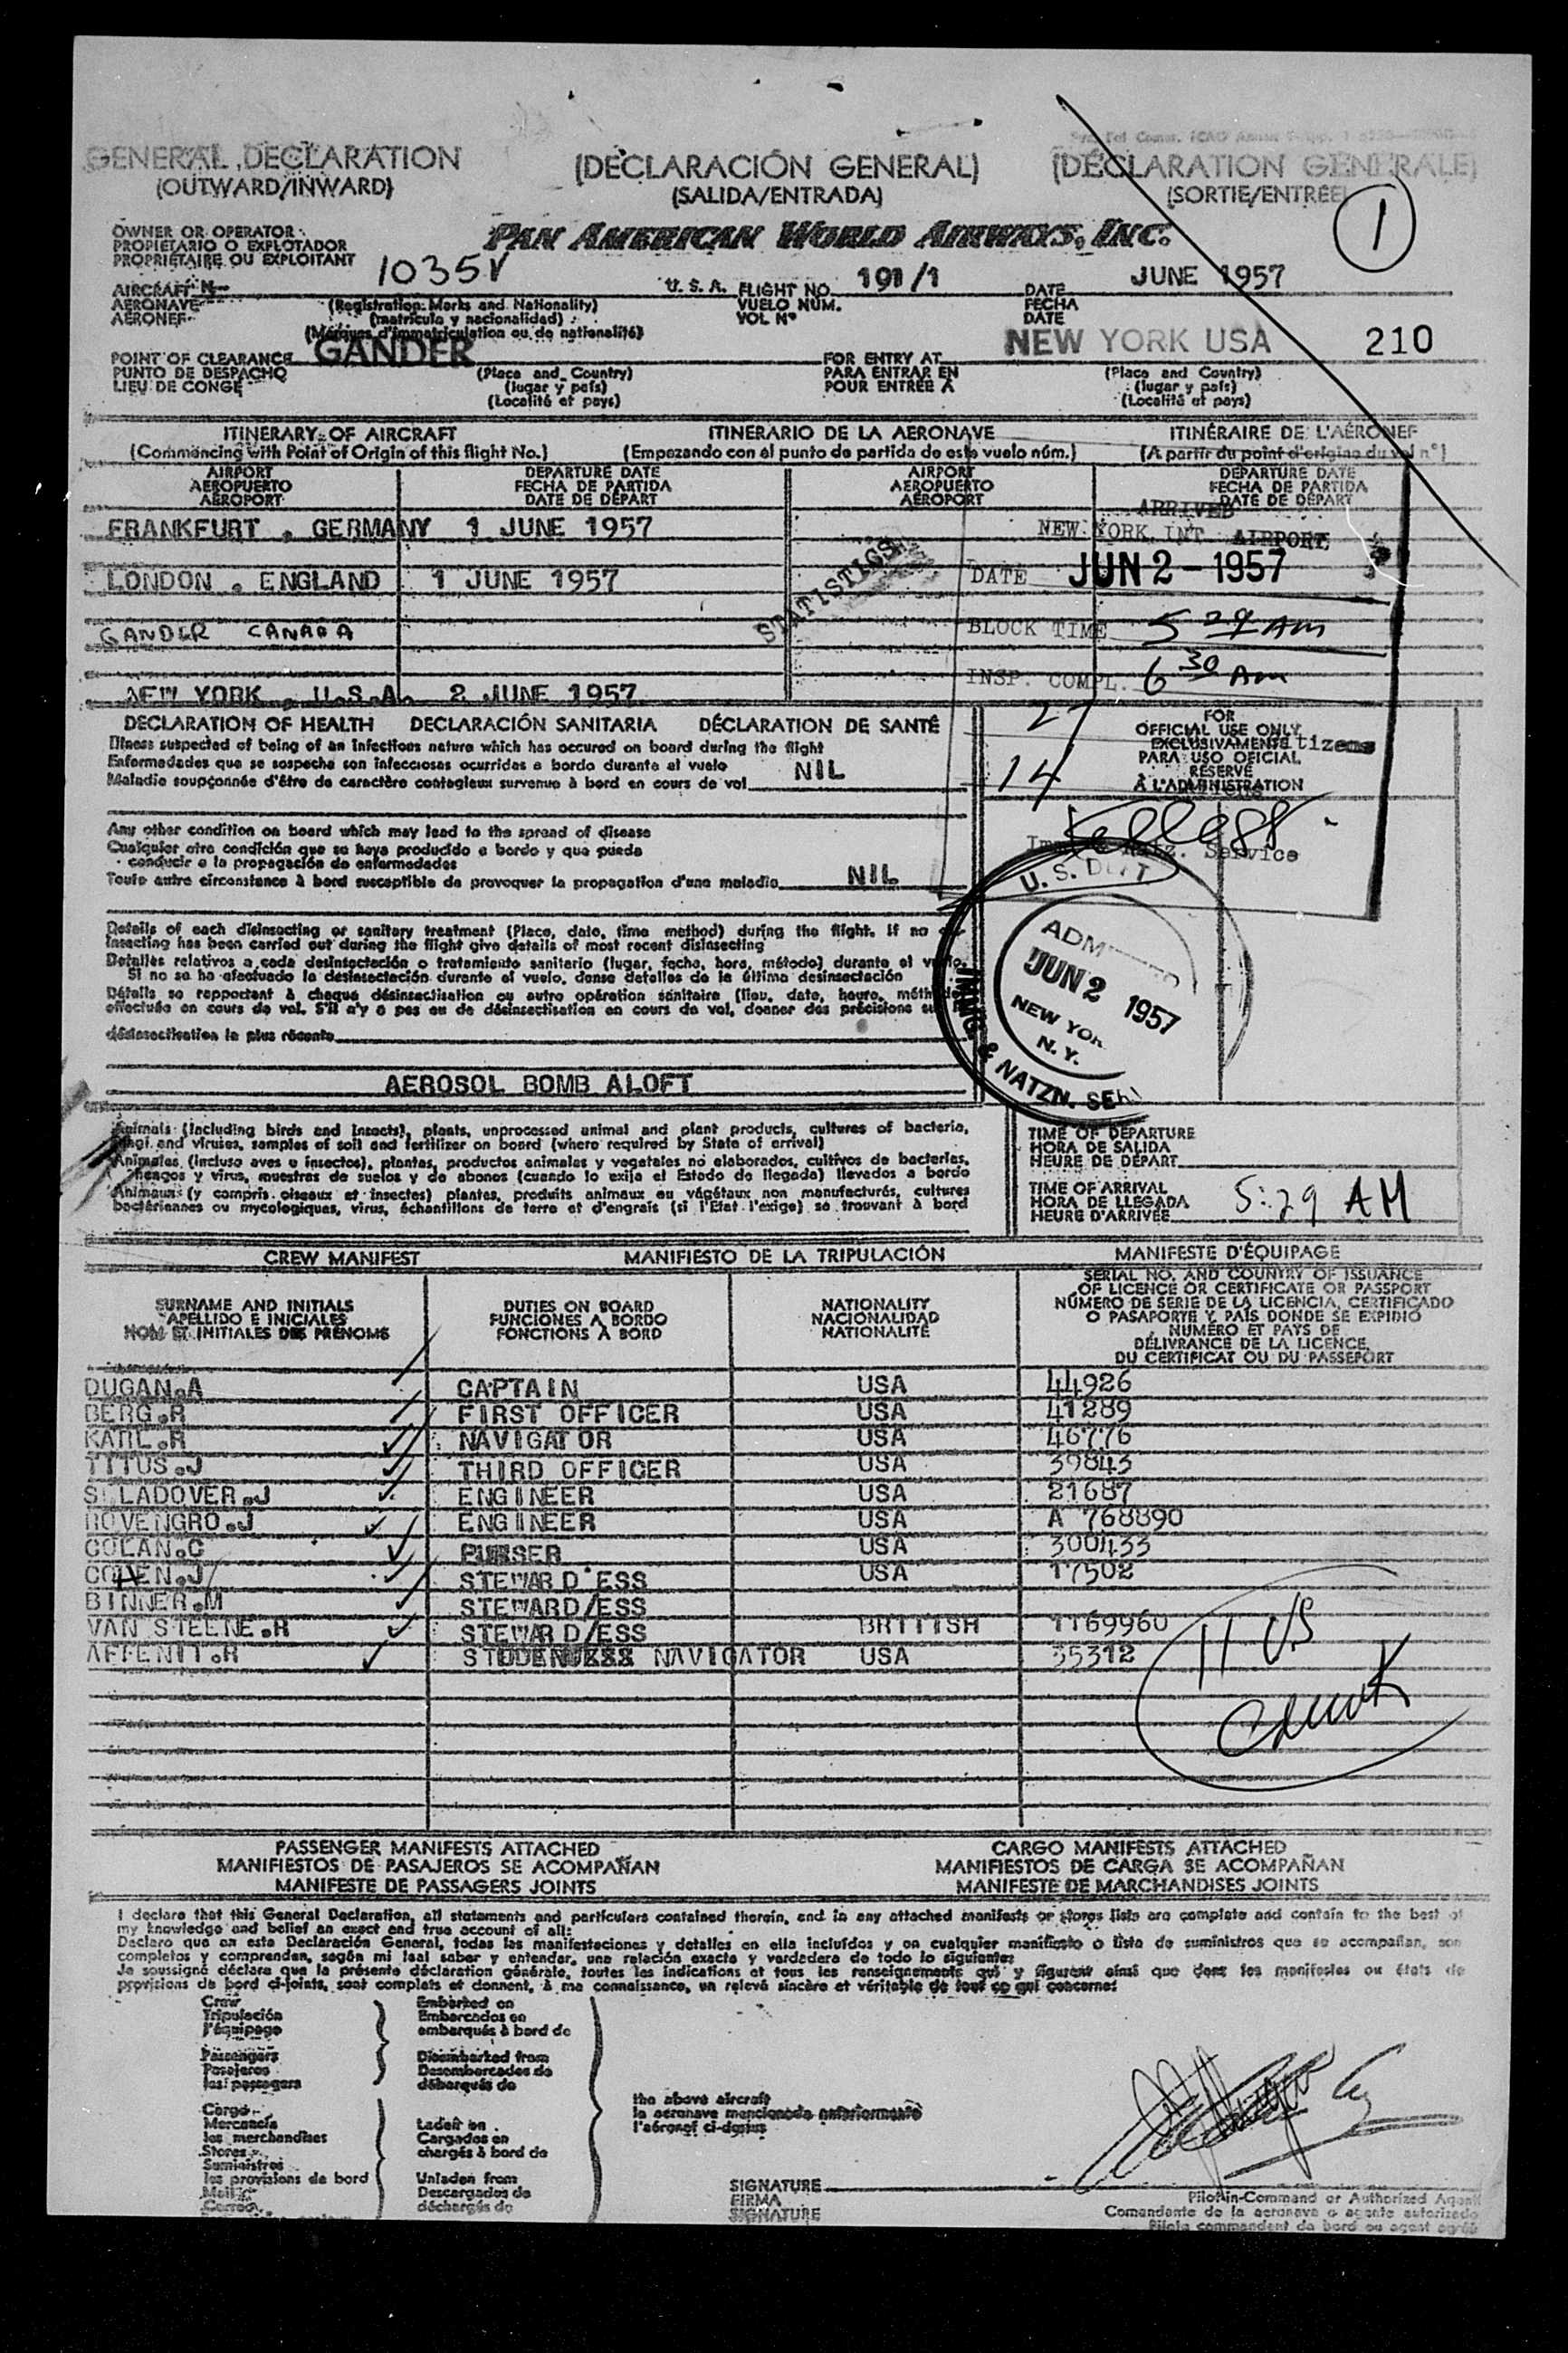 GENERAL DECLARATION
(OUTWARD/INWARD)
(DECLARACIÓN GENERAL)
(SALIDA/ENTRADA)
(DÉCLARATION GENERALE)
(SORTIE/ENTREE)
1
OWNER OR OPERATOR
PROPIETARIO O EXPLOTADOR
PROPRIÉTAIRE OU EXPLOITANT
PAN AMERICAN WORLD AIRWAYS, INC.
AIRCRAFT N- 1035V U.S.A.
AERONAVE
AÉRONEF
(Registration Marks and Nationality)
(matrícula y nacionalidad)
(Marques d'immatriculation ou de nationalité)
FLIGHT NO. 191/1
VUELO NÚM.
VOL Nº
DATE JUNE 1957
FECHA
DATE
POINT OF CLEARANCE GANDER
PUNTO DE DESPACHO
LIEU DE CONGÉ
(Place and Country)
(lugar y país)
(Localité et pays)
FOR ENTRY AT NEW YORK USA 210
PARA ENTRAR EN
POUR ENTRÉE À
(Place and Country)
(lugar y país)
(Localité et pays)
ITINERARY OF AIRCRAFT ITINERARIO DE LA AERONAVE ITINÉRAIRE DE L'AÉRONEF
(Commencing with Point of Origin of this flight No.) (Empezando con el punto de partida de este vuelo núm.) (A partir du point d'origine du vol nº)
AIRPORT DEPARTURE DATE AIRPORT DEPARTURE DATE
AEROPUERTO FECHA DE PARTIDA AEROPUERTO FECHA DE PARTIDA
AÉROPORT DATE DE DÉPART AÉROPORT DATE DE DÉPART
FRANKFURT . GERMANY 1 JUNE 1957
LONDON . ENGLAND 1 JUNE 1957
GANDER CANADA
NEW YORK . U.S.A. 2 JUNE 1957
STATISTICS
ARRIVED
NEW YORK INT. AIRPORT
DATE JUN 2 - 1957
BLOCK TIME 5 29 AM
INSP. COMPL. 6 30 AM
27
14
FOR
OFFICIAL USE ONLY
EXCLUSIVAMENTE
PARA USO OFICIAL
RÉSERVÉ
À L'ADMINISTRATION
Service
DECLARATION OF HEALTH DECLARACIÓN SANITARIA DÉCLARATION DE SANTÉ
Illness suspected of being of an infectious nature which has occured on board during the flight
Enfermedades que se sospecha son infecciosas ocurridas a bordo durante el vuelo
Maladie soupçonnée d'être de caractère contagieux survenue à bord en cours de vol NIL
Any other condition on board which may lead to the spread of disease
Cualquier otra condición que se haya producido a bordo y que pueda
conducir a la propagación de enfermedades
Toute autre circonstance à bord susceptible de provoquer la propagation d'une maladie NIL
Details of each disinsecting or sanitary treatment (Place, date, time method) during the flight. If no
insecting has been carried out during the flight give details of most recent disinsecting
Detalles relativos a cada desinsectación o tratamiento sanitario (lugar, fecha, hora, método) durante el vuelo.
Si no se ha efectuado la desinsectación durante el vuelo, dense detalles de la última desinsectación
Détails se rapportant à chaque désinsectisation ou autre opération sanitaire (lieu, date, heure, méthode)
effectuée en cours de vol. S'il n'y a pas eu de désinsectisation en cours de vol, donner des précisions sur
désinsectisation la plus récente
AEROSOL BOMB ALOFT
U. S. DEPT
IMMIG. & NATZN. SERV
ADMITTED
JUN 2 1957
NEW YORK
N. Y.
Animals (including birds and insects), plants, unprocessed animal and plant products, cultures of bacteria,
fungi and viruses, samples of soil and fertilizer on board (where required by State of arrival)
Animales (incluso aves e insectos), plantas, productos animales y vegetales no elaborados, cultivos de bacterias,
hongos y virus, muestras de suelos y de abonos (cuando lo exija el Estado de llegada) llevados a bordo
Animaux (y compris oiseaux et insectes) plantes, produits animaux ou végétaux non manufacturés, cultures
bactériennes ou mycologiques, virus, échantillons de terre et d'engrais (si l'État l'exige) se trouvant à bord
TIME OF DEPARTURE
HORA DE SALIDA
HEURE DE DÉPART
TIME OF ARRIVAL
HORA DE LLEGADA
HEURE D'ARRIVÉE 5:29 AM
CREW MANIFEST MANIFIESTO DE LA TRIPULACIÓN MANIFESTE D'ÉQUIPAGE
SURNAME AND INITIALS
APELLIDO E INICIALES
NOM ET INITIALES DES PRÉNOMS
DUTIES ON BOARD
FUNCIONES A BORDO
FONCTIONS À BORD
NATIONALITY
NACIONALIDAD
NATIONALITÉ
SERIAL NO. AND COUNTRY OF ISSUANCE
OF LICENCE OR CERTIFICATE OR PASSPORT
NÚMERO DE SERIE DE LA LICENCIA, CERTIFICADO
O PASAPORTE Y PAÍS DONDE SE EXPIDIÓ
NUMÉRO ET PAYS DE
DÉLIVRANCE DE LA LICENCE,
DU CERTIFICAT OU DU PASSEPORT
DUGAN.A CAPTAIN USA 44926
BERG.R FIRST OFFICER USA 41289
KATIL.R NAVIGATOR USA 46776
TITUS.J THIRD OFFICER USA 39843
SLLADOVER.J ENGINEER USA 21687
ROVENGRO.J ENGINEER USA A 768890
COLAN.C PURSER USA 300433
COHEN.J STEWARD'ESS USA 17502
BINNER.M STEWARD/ESS
VAN STEENE.R STEWARD/ESS BRITISH 1169960
AFFENIT.R STUDENT NAVIGATOR USA 35312
11 US
PASSENGER MANIFESTS ATTACHED
MANIFIESTOS DE PASAJEROS SE ACOMPAÑAN
MANIFESTE DE PASSAGERS JOINTS
CARGO MANIFESTS ATTACHED
MANIFIESTOS DE CARGA SE ACOMPAÑAN
MANIFESTE DE MARCHANDISES JOINTS
I declare that this General Declaration, all statements and particulars contained therein, and in any attached manifests or stores lists are complete and contain to the best of
my knowledge and belief an exact and true account of all:
Declaro que en esta Declaración General, todas las manifestaciones y detalles en ella incluídos y en cualquier manifiesto o lista de suministros que se acompañan, son
completos y comprenden, según mi leal saber y entender, una relación exacta y verdadera de todo lo siguiente:
Je soussigné déclare que la présente déclaration générale, toutes les indications et tous les renseignements qui y figurent ainsi que dans les manifestes ou états de
provisions de bord ci-joints, sont complets et donnent, à ma connaissance, un relevé sincère et véritable de tout ce qui concerne:
Crew
Tripulación
l'équipage
Passengers
Pasajeros
les passagers
Embarked on
Embarcados en
embarqués à bord de
Disembarked from
Desembarcados de
débarqués de
Cargo
Mercancía
les merchandises
Stores
Suministros
les provisions de bord
Mail
Correo
Laden on
Cargados en
chargés à bord de
Unladen from
Descargados de
déchargés de
the above aircraft
la aeronave mencionada anteriormente
l'aéronef ci-dessus
SIGNATURE
FIRMA
SIGNATURE
Pilot-in-Command or Authorized Agent
Comandante de la aeronave o agente autorizado
Pilote commandant de bord ou agent agréé